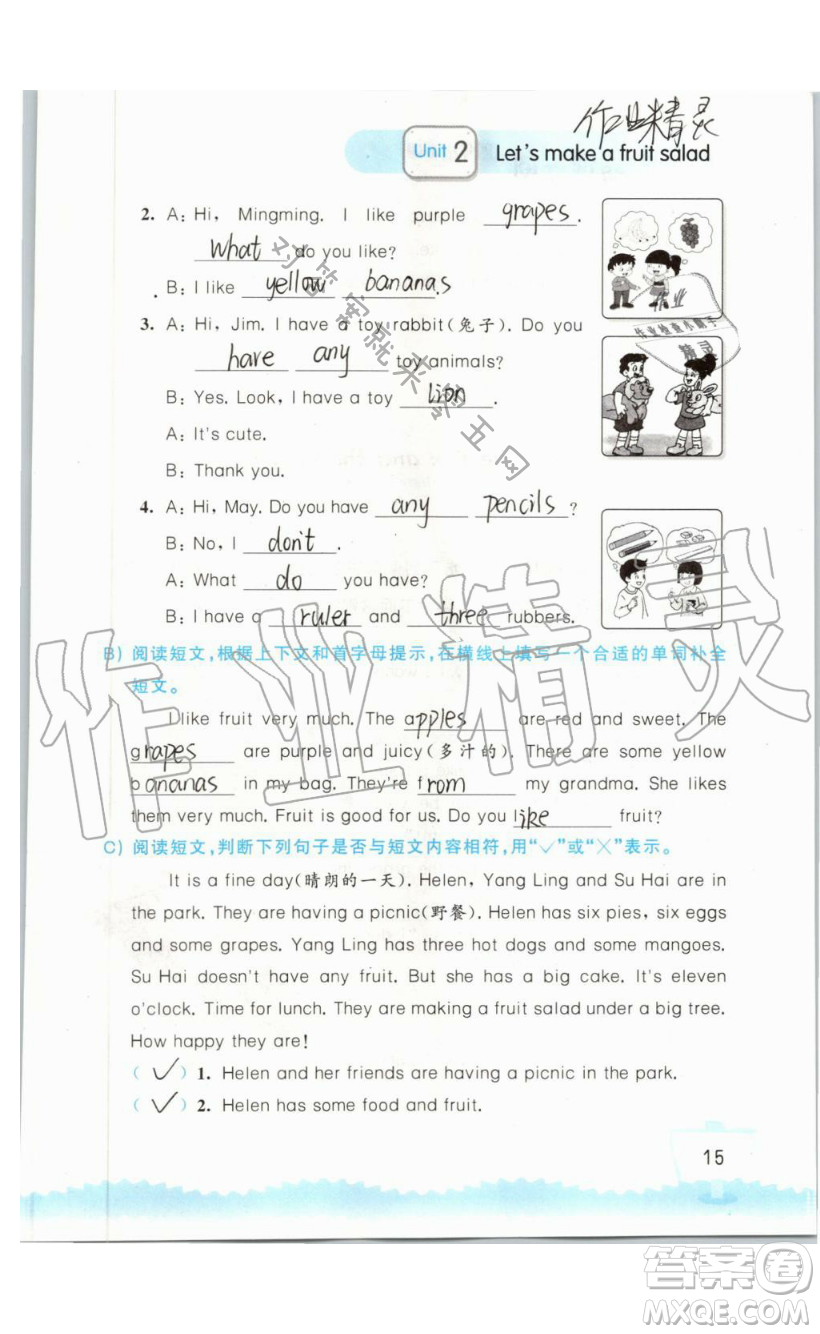 作业精灵
Unit 2 Let's make a fruit salad
2. A: Hi, Mingming. I like purple grapes.
What do you like?
B: I like yellow bananas.
3. A: Hi, Jim. I have a toy rabbit(兔子). Do you
have any toy animals?
B: Yes. Look, I have a toy lion.
A: It's cute.
B: Thank you.
4. A: Hi, May. Do you have any pencils?
B: No, I don't.
A: What do you have?
B: I have a ruler and three rubbers.
对答案就来零五网
作业检查小帮手
精灵
作业精灵
B) 阅读短文,根据上下文和首字母提示,在横线上填写一个合适的单词补全
短文。
I like fruit very much. The apples are red and sweet. The
grapes are purple and juicy(多汁的). There are some yellow
bananas in my bag. They're from my grandma. She likes
them very much. Fruit is good for us. Do you like fruit?
C) 阅读短文,判断下列句子是否与短文内容相符,用“✓”或“×”表示。
It is a fine day(晴朗的一天). Helen, Yang Ling and Su Hai are in
the park. They are having a picnic(野餐). Helen has six pies, six eggs
and some grapes. Yang Ling has three hot dogs and some mangoes.
Su Hai doesn't have any fruit. But she has a big cake. It's eleven
o'clock. Time for lunch. They are making a fruit salad under a big tree.
How happy they are!
( ✓ ) 1. Helen and her friends are having a picnic in the park.
( ✓ ) 2. Helen has some food and fruit.
15
答案卷
MXQE.COM